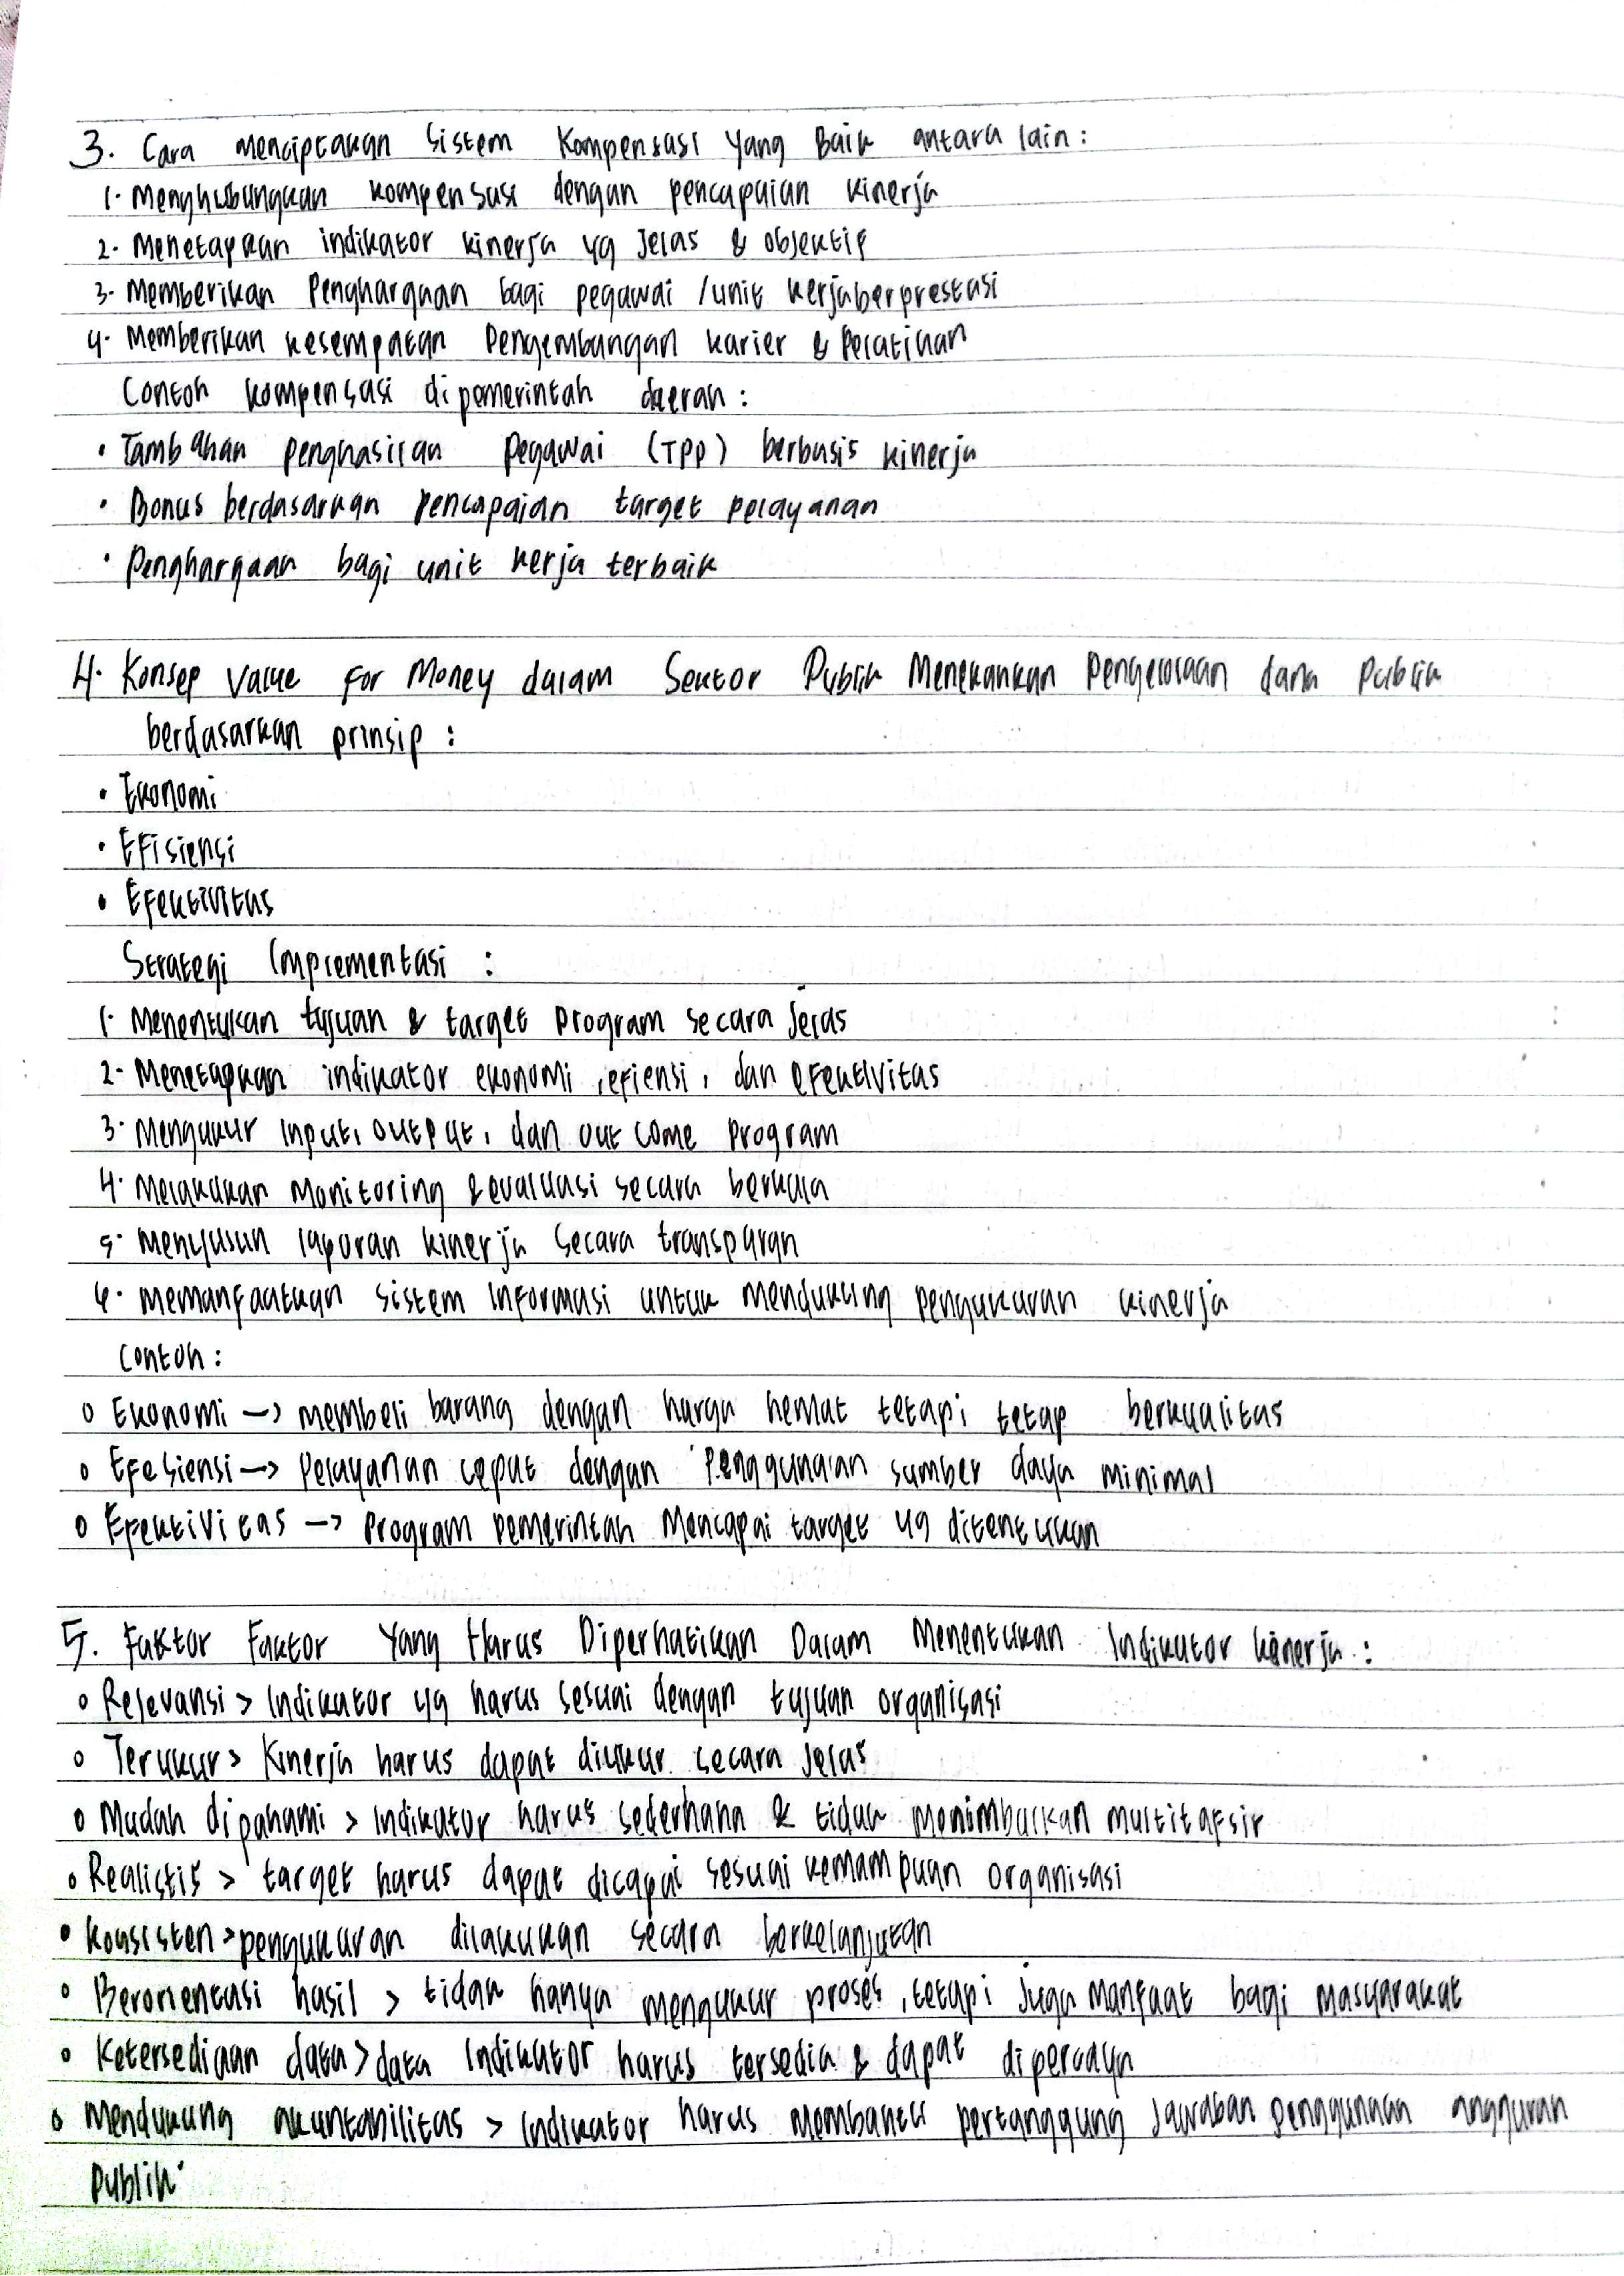 3. Cara menciptakan Sistem Kompensasi Yang Baik antara lain :
1. Menghubungkan kompensasi dengan pencapaian kinerja
2. Menetapkan indikator kinerja yg Jelas & objektif
3. Memberikan Penghargaan bagi pegawai /unit kerja berprestasi
4. Memberikan kesempatan Pengembangan karier & Pelatihan
Contoh kompensasi di pemerintah daerah :
• Tambahan penghasilan Pegawai (TPP) berbasis kinerja
• Bonus berdasarkan pencapaian target pelayanan
• Penghargaan bagi unit kerja terbaik
4. Konsep Value For Money dalam Sektor Publik Menekankan Pengelolaan dana Publik
berdasarkan prinsip :
• Ekonomi
• Efisiensi
• Efektivitas
Strategi Implementasi :
1. Menentukan tujuan & target Program secara Jelas
2. Menetapkan indikator ekonomi , efiensi , dan efektivitas
3. Mengukur Input, output, dan out come Program
4. Melakukan Monitoring & evaluasi secara berkala
5. Menyusun laporan kinerja Secara transparan
6. Memanfaatkan Sistem Informasi untuk mendukung pengukuran kinerja
Contoh :
o Ekonomi —> membeli barang dengan harga hemat tetapi tetap berkualitas
o Efesiensi —> Pelayanan cepat dengan Penggunaan sumber daya minimal
o Efektivitas —> Program Pemerintah Mencapai target yg ditentukan
5. Faktor Faktor Yang Harus Diperhatikan Dalam Menentukan Indikator kinerja :
o Relevansi > Indikator yg harus sesuai dengan tujuan organisasi
o Terukur > Kinerja harus dapat diukur secara Jelas
o Mudah dipahami > Indikator harus sederhana & tidak Menimbulkan multitafsir
o Realistis > target harus dapat dicapai sesuai kemampuan organisasi
• Konsisten > pengukuran dilakukan secara berkelanjutan
o Berorientasi hasil > tidak hanya mengukur proses , tetapi Juga Manfaat bagi masyarakat
o Ketersediaan data > data Indikator harus tersedia & dapat dipercaya
o Mendukung akuntabilitas > Indikator harus Membantu pertanggung Jawaban penggunaan anggaran
Publik.